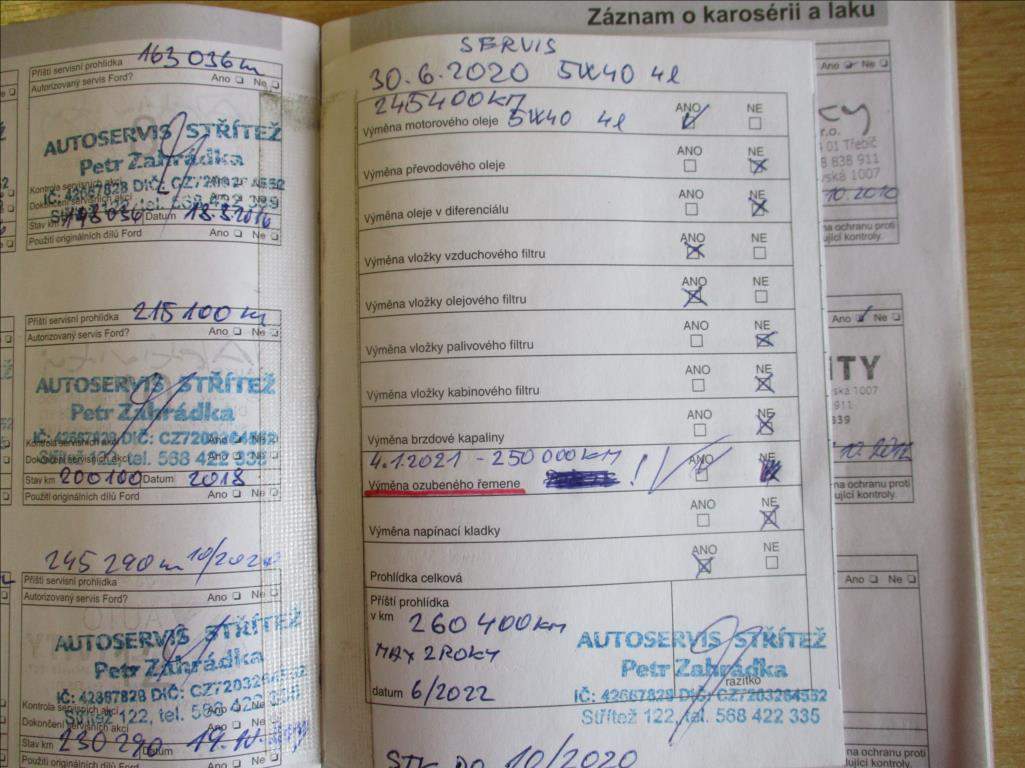 Záznam o karosérii a laku
163 036 km
Příští servisní prohlídka
Autorizovaný servis Ford? Ano Ne
AUTOSERVIS STŘÍTEŽ
Petr Zahrádka
Kontrola servisních akcí
IČ: 42667828 DIČ: CZ7203264552
Dokončení servisních akcí
Střítež 122, tel. 568 422 335
Stav km Datum
Použití originálních dílů Ford Ano Ne
215 100 km
Příští servisní prohlídka
Autorizovaný servis Ford? Ano Ne
AUTOSERVIS STŘÍTEŽ
Petr Zahrádka
IČ: 42667828 DIČ: CZ7203264552
Kontrola servisních akcí Ano Ne
Dokončení servisních akcí
Střítež 122, tel. 568 422 335
Stav km 200100 Datum 2018
Použití originálních dílů Ford Ano Ne
245 290 km 10/2020
Příští servisní prohlídka
Autorizovaný servis Ford? Ano Ne
AUTOSERVIS STŘÍTEŽ
Petr Zahrádka
IČ: 42667828 DIČ: CZ7203264552
Kontrola servisních akcí
Střítež 122, tel. 568 422 335
Dokončení servisních akcí Ano Ne
Stav km 230 290 Datum
Použití originálních dílů Ford Ano Ne
SERVIS
30.6.2020 5W40 4l
245400km
Výměna motorového oleje 5W40 4l ANO NE
Výměna převodového oleje ANO NE
Výměna oleje v diferenciálu ANO NE
Výměna vložky vzduchového filtru ANO NE
Výměna vložky olejového filtru ANO NE
Výměna vložky palivového filtru ANO NE
Výměna vložky kabinového filtru ANO NE
Výměna brzdové kapaliny ANO NE
4.1.2021 - 250 000km
Výměna ozubeného řemene ! ANO NE
Výměna napínací kladky ANO NE
Prohlídka celková ANO NE
Příští prohlídka
v km 260 400km
MAX 2 ROKY
datum 6/2022
AUTOSERVIS STŘÍTEŽ
Petr Zahrádka
razítko
IČ: 42667828 DIČ: CZ7203264552
Střítež 122, tel. 568 422 335
STK DO 10/2020
Ano Ne
r.o.
01 Třebíč
838 911
vská 1007
10.2010
na ochranu proti
ující kontroly.
Ano Ne
ITY
ská 1007
911
339
10.2012
na ochranu proti
ující kontroly.
Ano Ne
na ochranu proti
ující kontroly.